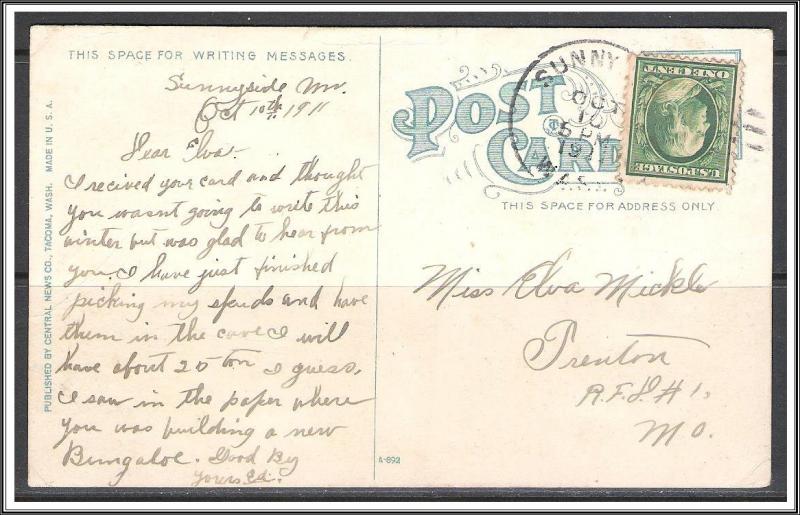 THIS SPACE FOR WRITING MESSAGES.
Sunnyside Wn.
Oct 10th, 1911
Dear Elva.
I recived your card and thought
you wasnt going to write this
winter but was glad to hear from
you. I have just finished
picking my spuds and have
them in the cave I will
have about 20 ton I guess.
I saw in the paper where
you was building a new
Bungaloe. Good By
Yours Ed.
PUBLISHED BY CENTRAL NEWS CO., TACOMA, WASH. MADE IN U. S. A.
A-892
POST CARD
SUNNY
OCT
10
5 PM
191
WAS
U.S. POSTAGE
ONE CENT
THIS SPACE FOR ADDRESS ONLY.
Miss Elva Mickle
Trenton
R.F.D. #1,
Mo.